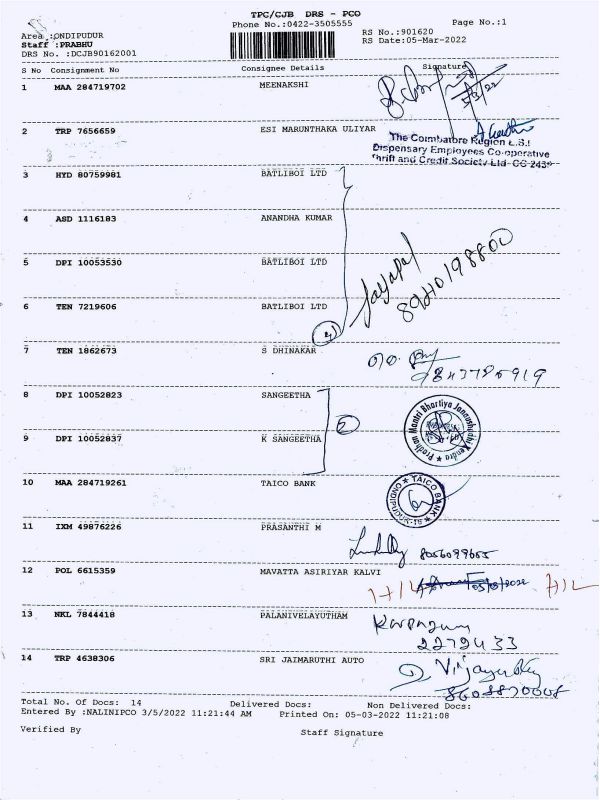 TPC/CJB DRS - PCO
Phone No.:0422-3505555
Page No.:1
Area :ONDIPUDUR
RS No.:901620
Staff :PRABHU
RS Date:05-Mar-2022
DRS No. :DCJB90162001
S No Consignment No Consignee Details Signature
1 MAA 284719702 MEENAKSHI
5/3/22
2 TRP 7656659 ESI MARUNTHAKA ULIYAR
The Coimbatore Region E.S.I
Dispensary Employees Co-operative
Thrift and Credit Society Ltd CC 243
3 HYD 80759981 BATLIBOI LTD
4 ASD 1116183 ANANDHA KUMAR
5 DPI 10053530 BATLIBOI LTD
Jayapal
8940198800
6 TEN 7219606 BATLIBOI LTD
4
7 TEN 1862673 S DHINAKAR
8 DPI 10052823 SANGEETHA
2
Pradhan Mantri Bhartiya Janaushadhi Kendra
9 DPI 10052837 K SANGEETHA
10 MAA 284719261 TAICO BANK
TAICO BANK
11 IXM 49876226 PRASANTHI M
8056099655
12 POL 6615359 MAVATTA ASIRIYAR KALVI
13 NKL 7844418 PALANIVELAYUTHAM
2272433
14 TRP 4638306 SRI JAIMARUTHI AUTO
Total No. Of Docs: 14 Delivered Docs: Non Delivered Docs:
Entered By :NALINIPCO 3/5/2022 11:21:44 AM Printed On: 05-03-2022 11:21:08
Verified By Staff Signature